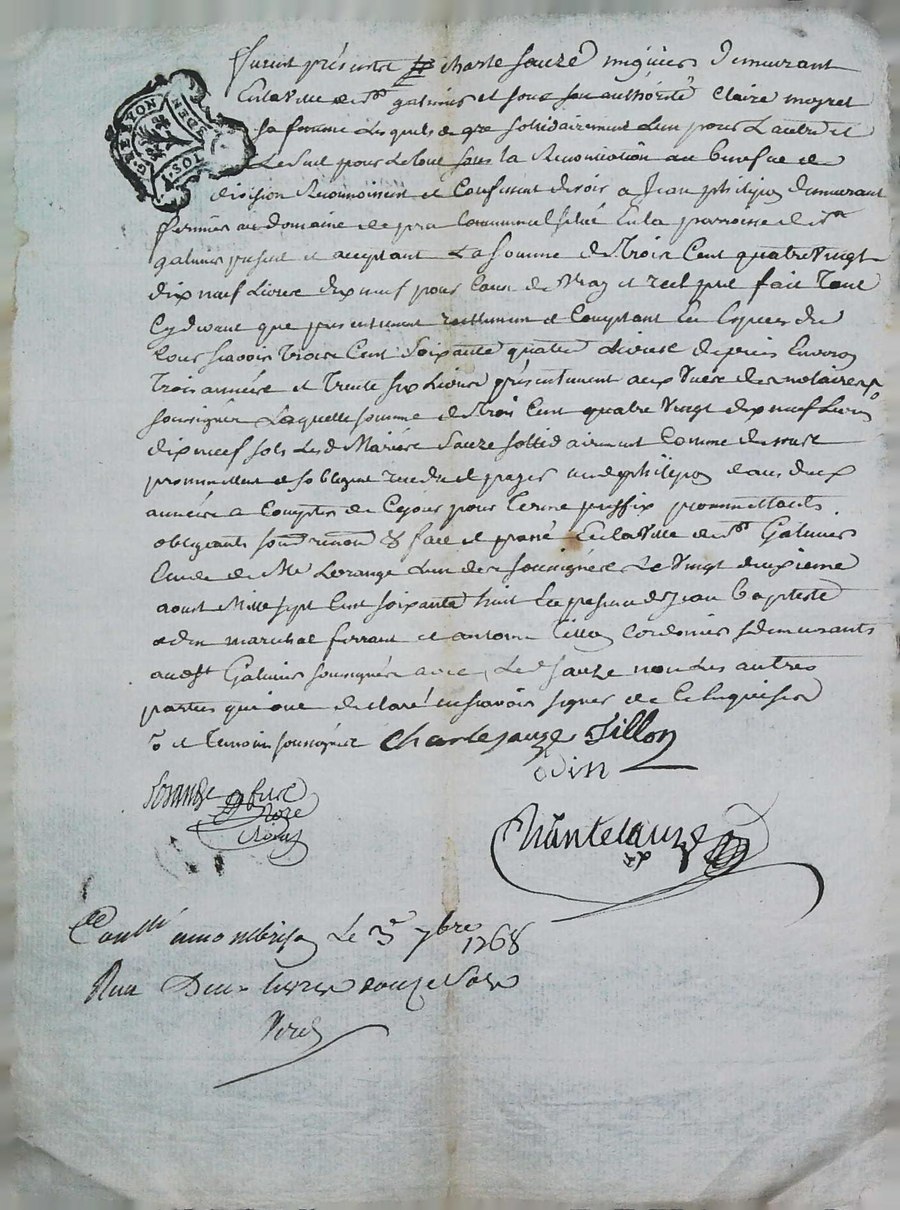 GNE LYON
SOLS
Furent présents charle sauze demeurant
En la ville de st galmier et sous son authorité Claire
sa femme Lesquels de gré solidairement L'un pour L'autre et
Le seul pour Le tout sous la Renonciation au benefice de
division Reconnoissent et Confessent devoir a Jean philipon demeurant
fermier au domaine de situé En la parroisse de st
galmier present et acceptant La somme de trois Cent quatre vingt
dix neuf Livres dix neuf pour Cause de vray et reel pret fait Tant
Cy devant que presentement reellement et Comptant En Especes du
Cours scavoir trois Cent soixante quatre Livres depuis Environ
trois années et trente six Livres présentement aux vues des notaires
soussignés Laquelle somme de trois Cent quatre vingt dix neuf Livres
dix neuf sols Les d mariés sauze sollidairement Comme dessus
promettent et s'obligent rendre et payer aud philipon dans deux
années a Compter de Ce jour pour Terme prefix promettants
obligeants soum renon & fait et passé En la ville de st Galmier
Etude de Me Lorange L'un des soussignés Le vingt deuxieme
aoust mille sept Cent soixante huit En presence de Jean Baptiste
odin marechal ferrant et antoine tillon Cordonier demeurants
aud st Galmier soussignés avec Led sauze non Les autres
parties qui ont declaré ne scavoir signer de Ce Enquises
et temoins soussignés Charle sauze Tillon
odin
Lorange
Chantelauze
Conllé a montbrison Le 3e 7bre 1768
Reçu Deux livres douze sols